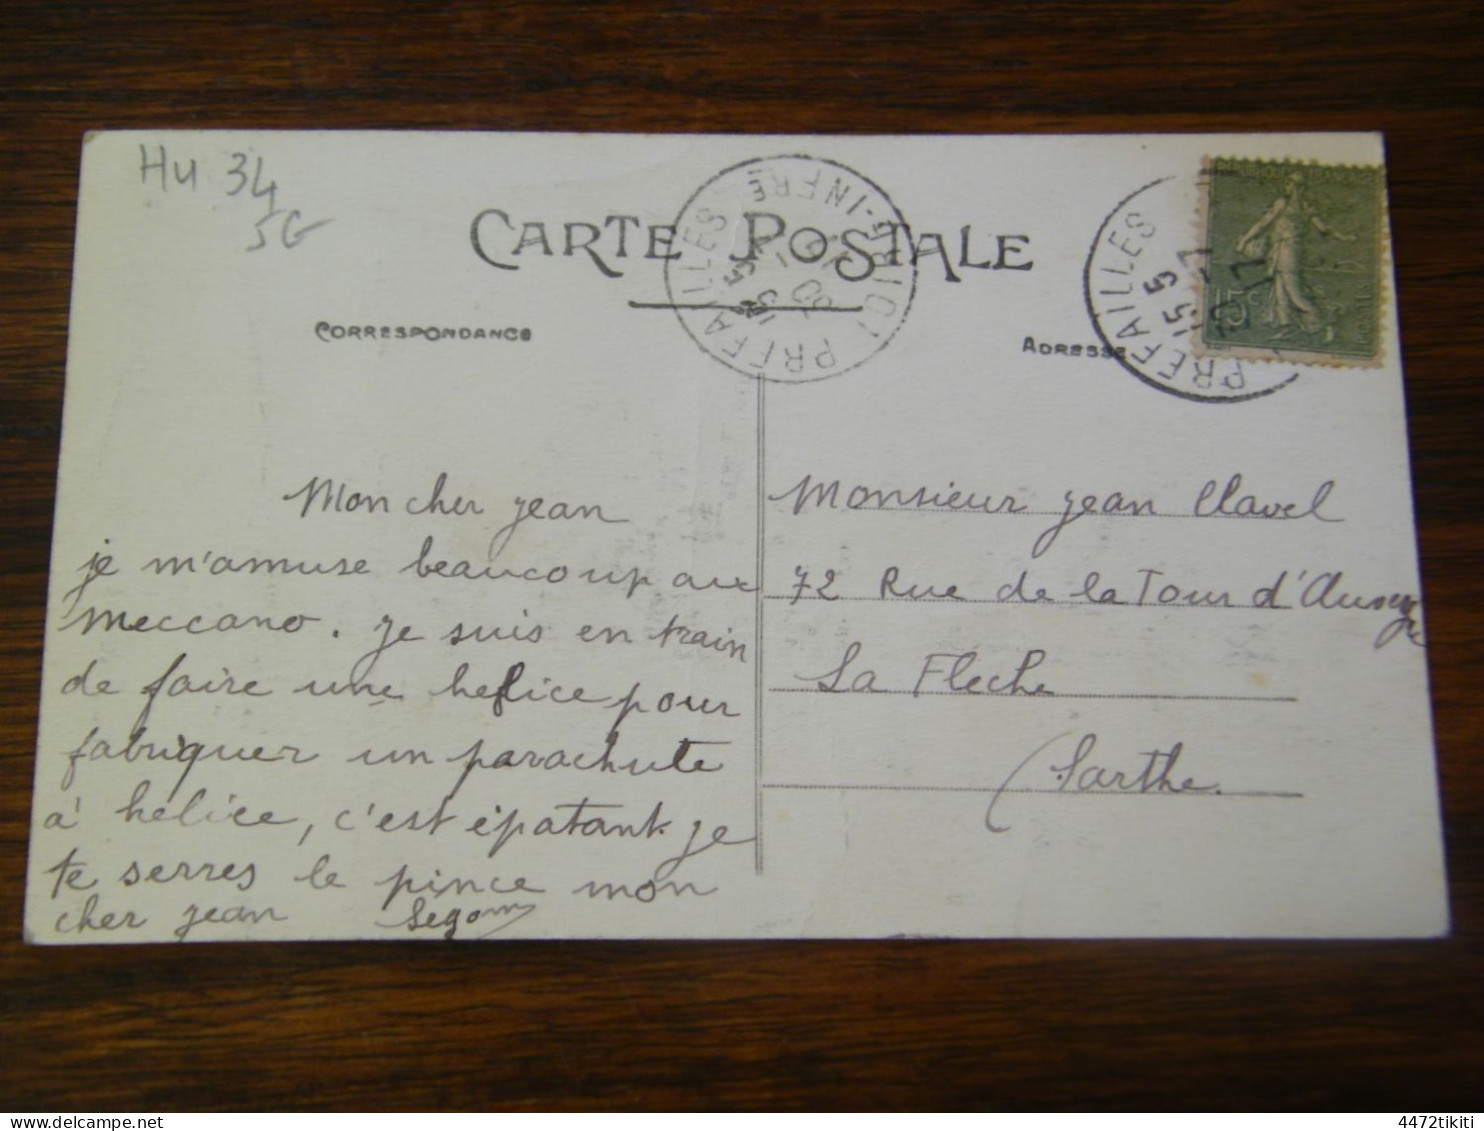 Hu 34
5G
CARTE POSTALE
CORRESPONDANCE
ADRESSE
PREFAILLES LOIRE-INFRE
15 5
20 -7
PREFAILLES
15 5
-7
17
15c
Mon cher jean
je m'amuse beaucoup au
meccano. je suis en train
de faire une helice pour
fabriquer un parachute
à hélice, c'est épatant. je
te serres le pince mon
cher jean Segom
Monsieur jean Clavel
72 Rue de la Tour d'Auvergne
La Fleche
(Sarthe.
4472tikiti